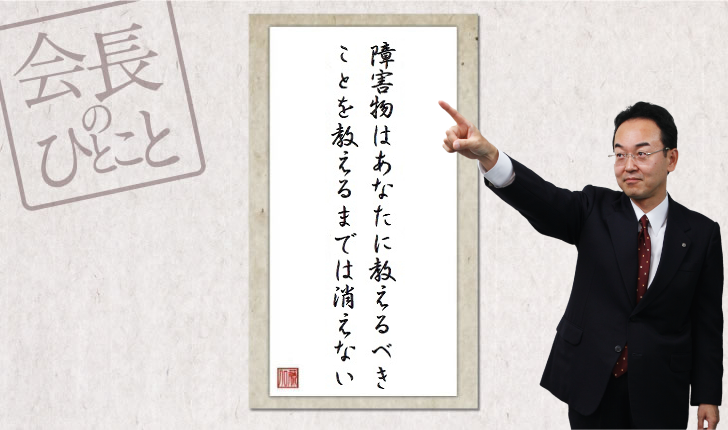 会長
の
ひとこと
障害物はあなたに教えるべき
ことを教えるまでは消えない